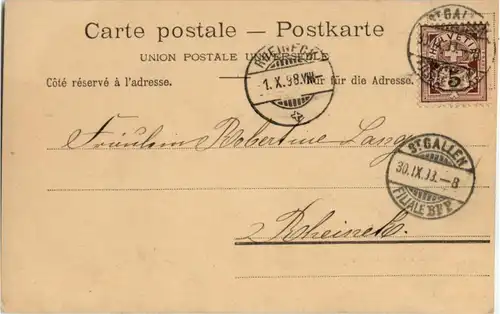 Carte postale — Postkarte
UNION POSTALE UNIVERSELLE
Côté réservé à l'adresse. Nur für die Adresse.
RHEINECK
1.X.98.VIII
ST GALLEN
HELVETIA
5
Fräulein Robertine Lang
ST GALLEN
30.IX.98.-8
FILIALE BHF
Rheineck.